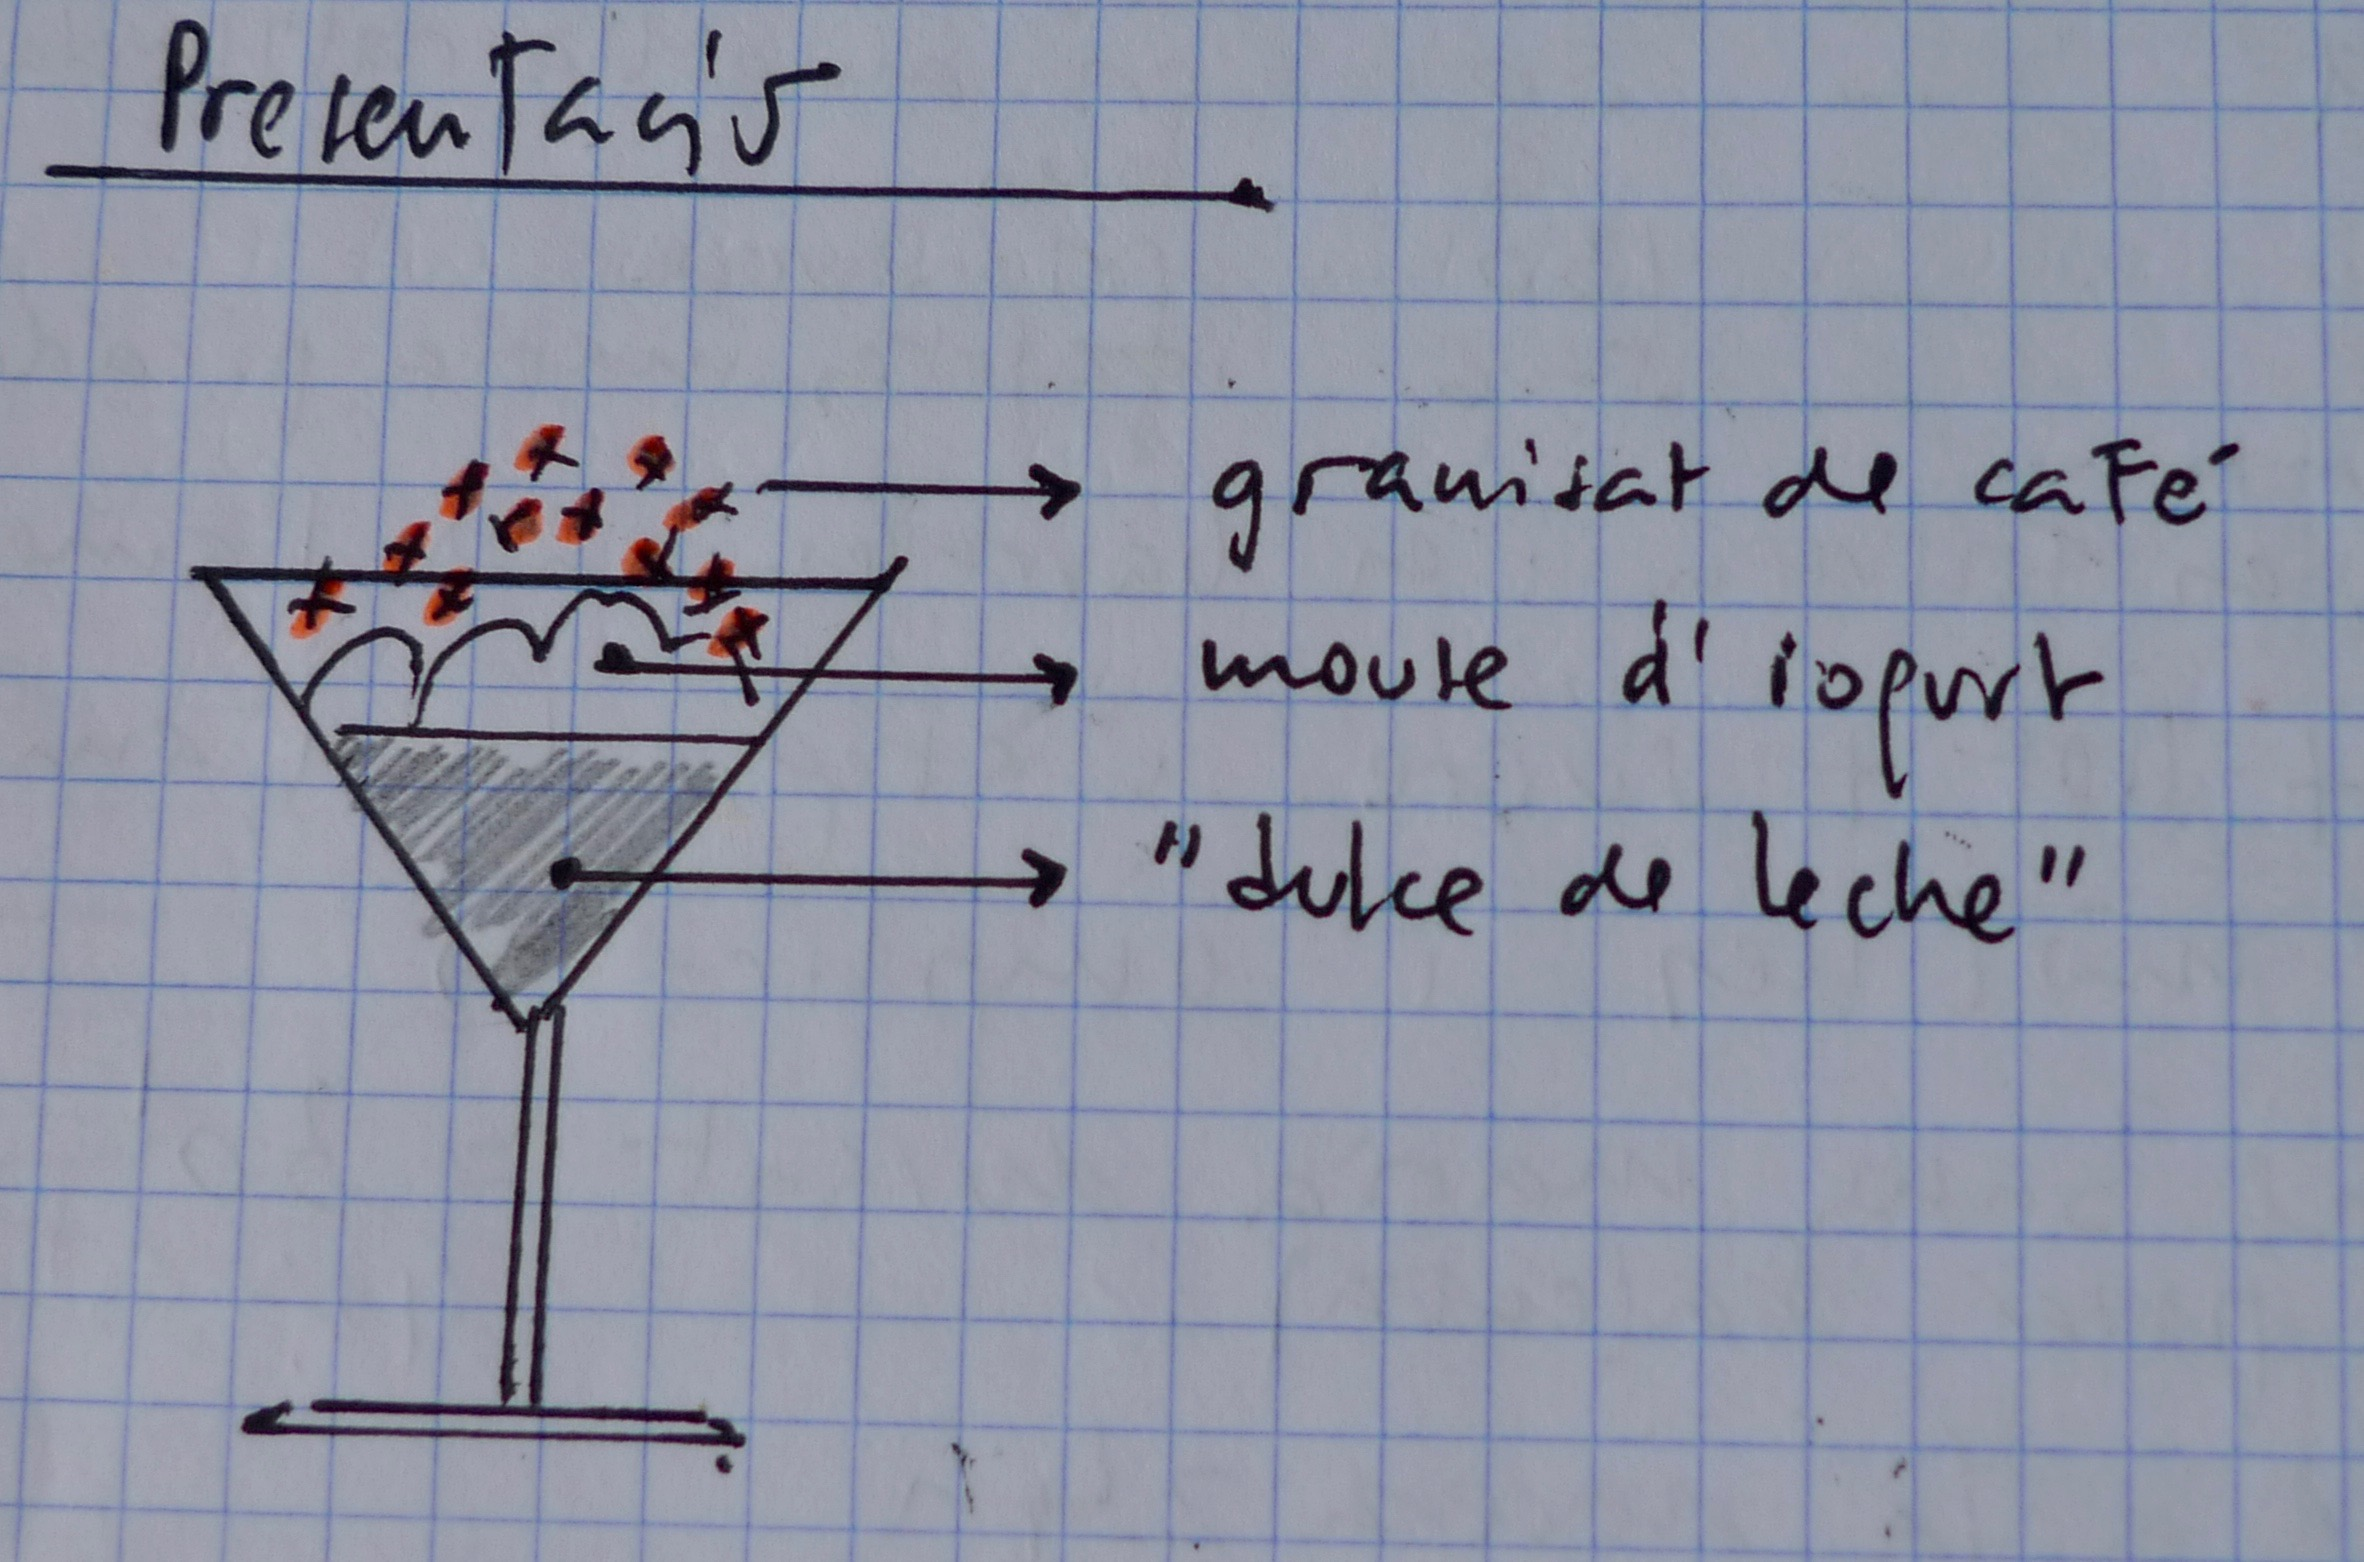 Presentació
granisat de café
mouse d'iogurt
"dulce de leche"